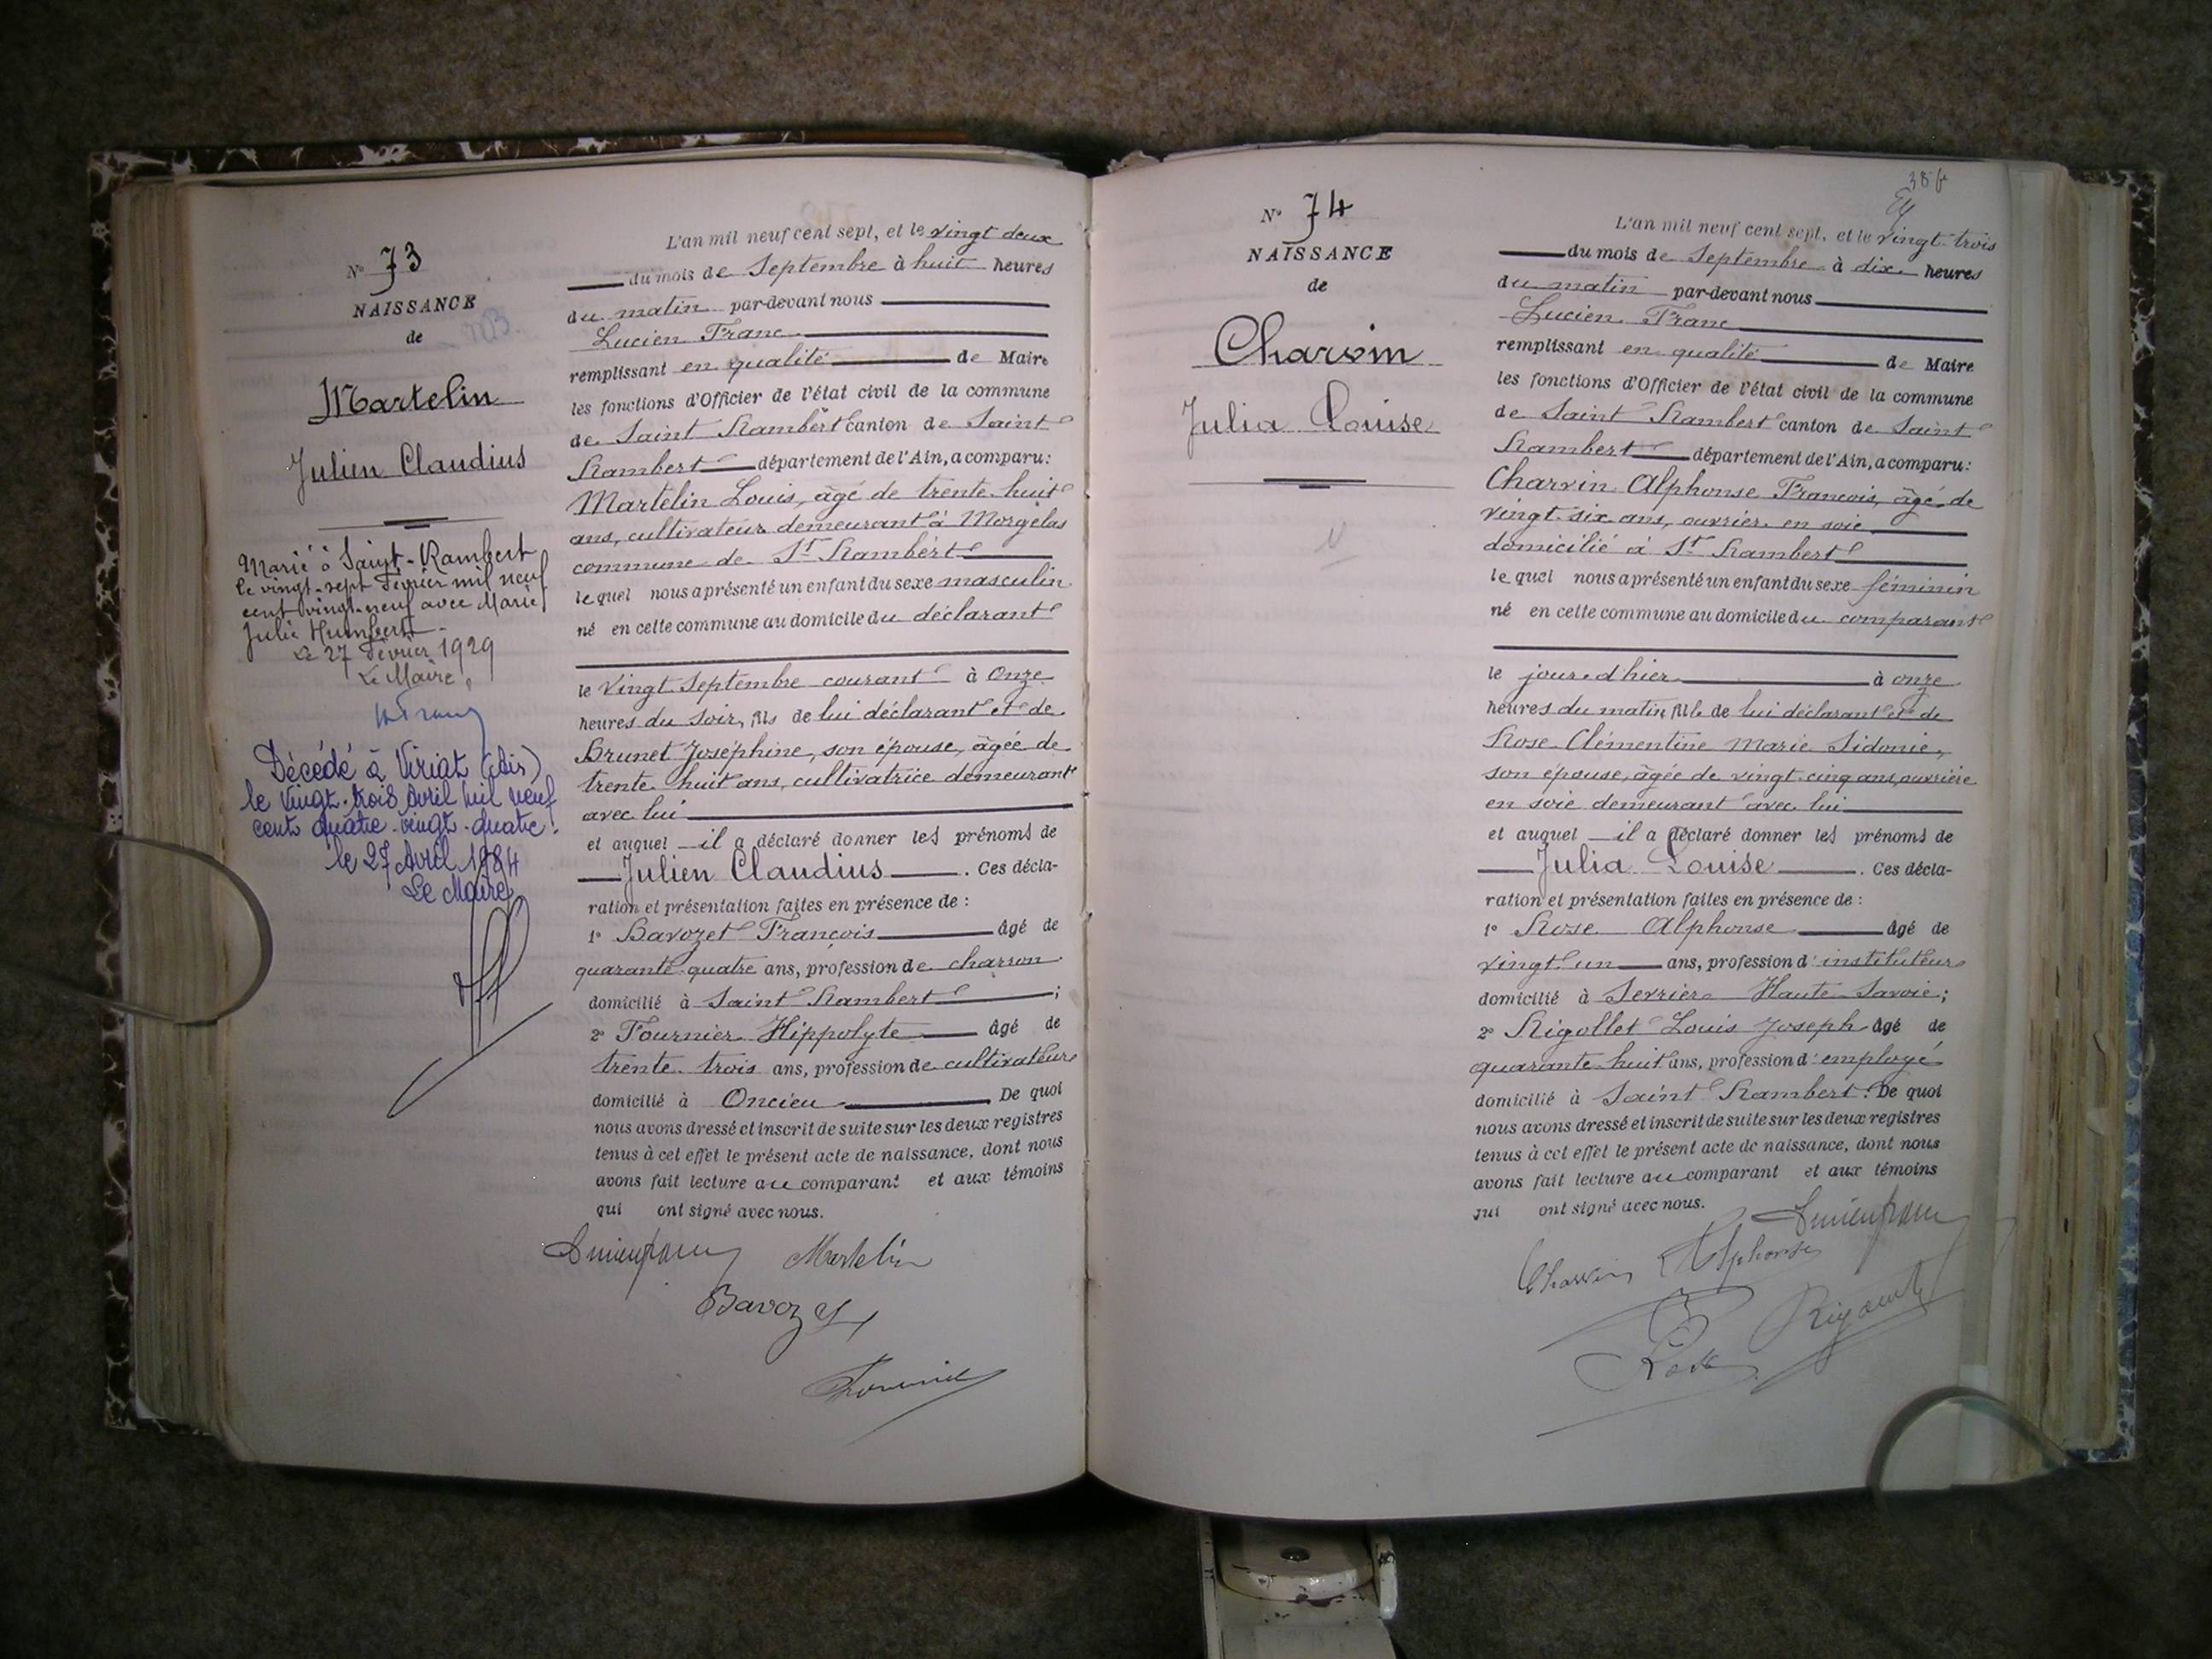 N° 73
NAISSANCE
de
Martelin
Julien Claudius
Marié à Saint-Rambert
le vingt-sept Février mil neuf
cent vingt-neuf avec Marie
Julie Humbert
Le 27 Février 1929
Le Maire,
Décédé à Viriat (Ain)
le vingt-trois Avril mil neuf
cent quatre-vingt-quatre.
le 27 Avril 1984
Le Maire
L'an mil neuf cent sept, et le vingt deux
du mois de Septembre à huit heures
du matin par-devant nous
Lucien Franc
remplissant en qualité de Maire
les fonctions d'Officier de l'état civil de la commune
de Saint Rambert canton de Saint
Rambert département de l'Ain, a comparu:
Martelin Louis, âgé de trente huit
ans, cultivateur demeurant à Morgelas
commune de St Rambert
le quel nous a présenté un enfant du sexe masculin
né en cette commune au domicile du déclarant
le vingt Septembre courant à Onze
heures du soir, fils de lui déclarant et de
Brunet Joséphine, son épouse, âgée de
trente huit ans, cultivatrice demeurant
avec lui
et auquel il a déclaré donner les prénoms de
Julien Claudius. Ces décla-
ration et présentation faites en présence de :
1° Bavozet François âgé de
quarante-quatre ans, profession de charron
domicilié à Saint Rambert ;
2° Fournier Hippolyte âgé de
trente-trois ans, profession de cultivateur
domicilié à Oncieu De quoi
nous avons dressé et inscrit de suite sur les deux registres
tenus à cet effet le présent acte de naissance, dont nous
avons fait lecture au comparant et aux témoins
qui ont signé avec nous.
Lucien Franc Martelin
Bavozet
Fournier
N° 74
NAISSANCE
de
Charvin
Julia Louise
L'an mil neuf cent sept, et le vingt-trois
du mois de Septembre à dix heures
du matin par-devant nous
Lucien Franc
remplissant en qualité de Maire
les fonctions d'Officier de l'état civil de la commune
de Saint Rambert canton de Saint
Rambert département de l'Ain, a comparu:
Charvin Alphonse François, âgé de
vingt-six ans, ouvrier en soie
domicilié à St Rambert
le quel nous a présenté un enfant du sexe féminin
né en cette commune au domicile du comparant
le jour d'hier à onze
heures du matin, fille de lui déclarant et de
Rose Clémentine Marie Sidonie,
son épouse, âgée de vingt-cinq ans, ouvrière
en soie demeurant avec lui
et auquel il a déclaré donner les prénoms de
Julia Louise. Ces décla-
ration et présentation faites en présence de :
1° Rose Alphonse âgé de
vingt un ans, profession d'instituteur
domicilié à Serrier Haute-Savoie;
2° Rigollet Louis Joseph âgé de
quarante-huit ans, profession d'employé
domicilié à Saint Rambert. De quoi
nous avons dressé et inscrit de suite sur les deux registres
tenus à cet effet le présent acte de naissance, dont nous
avons fait lecture au comparant et aux témoins
qui ont signé avec nous.
Lucien Franc
Charvin Alphonse